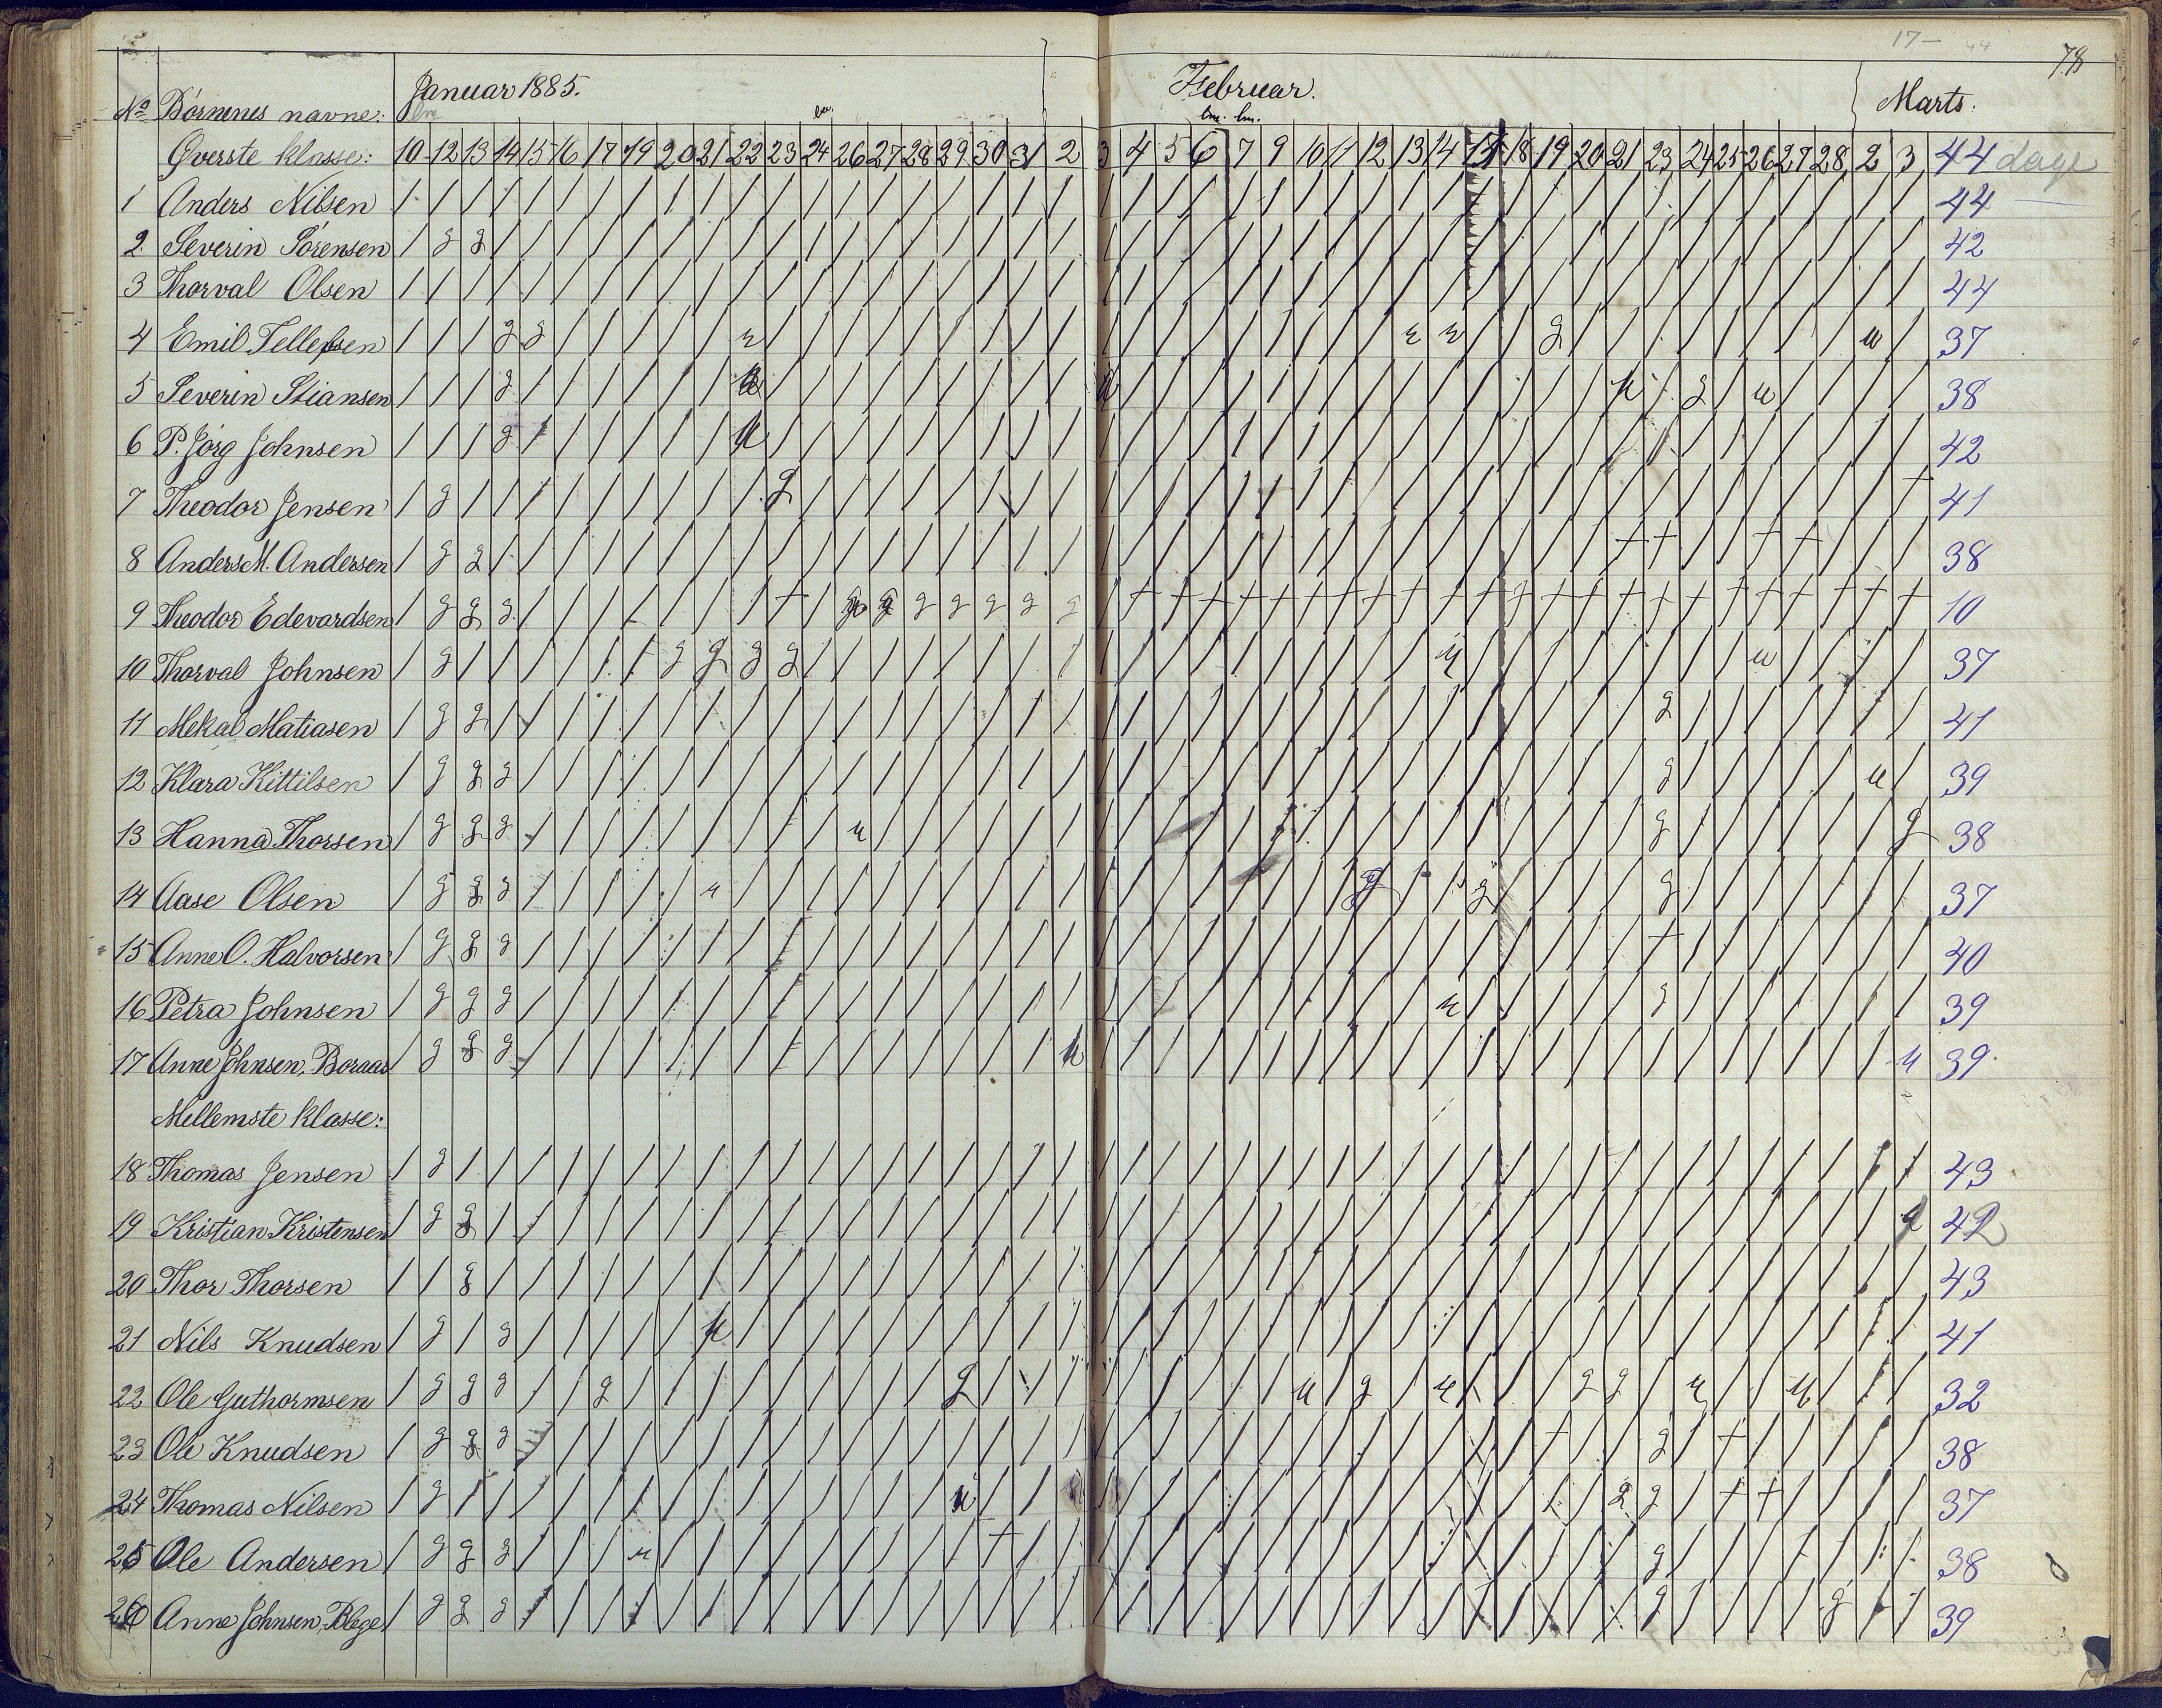 78
Januar 1885. Februar. Marts.
No Børnenes navne:
Øverste klasse: 10 12 13 14 15 16 17 19 20 21 22 23 24 26 27 28 29 30 31 2 3 4 5 6 7 9 10 11 12 13 14 17 18 19 20 21 23 24 25 26 27 28 2 3 44 dage
1 Anders Nilsen 44
2 Severin Sørensen g g 42
3 Thorval Olsen 44
4 Emil Tellefsen g g 37
5 Severin Stiansen g u u g u 38
6 P. Jørg Johnsen g u 42
7 Theodor Jensen g g + 41
8 Anders M. Andersen g g + + + + 38
9 Theodor Edevardsen g g g + g g g g g g g 10
10 Thorval Johnsen g g g g g u u 37
11 Mekal Matiasen g g g 41
12 Klara Kittilsen g g g g u 39
13 Hanna Thorsen g g g u g g 38
14 Aase Olsen g g g u g g g 37
15 Anne O. Halvorsen g g g + 40
16 Petra Johnsen g g g u g 39
17 Anne Johnsen, Boraas g g g u u 39
Mellemste klasse:
18 Thomas Jensen g 43
19 Kristian Kristensen g g g 42
20 Thor Thorsen g 43
21 Nils Knudsen g g u 41
22 Ole Guthormsen g g g g g u g u g g u u 32
23 Ole Knudsen g g g + g + 38
24 Thomas Nilsen g u g g + + 37
25 Ole Andersen g g g u + g 38
26 Anne Johnsen, Blege g g g g g 39